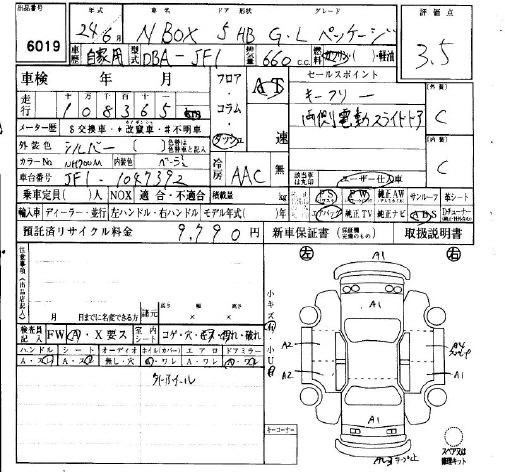 出品番号 6019
年式 24年6月
車名 N BOX
ドア 形状 5 HB
グレード G・Lパッケージ
評価点 3.5
車歴 自家用 型式 DBA-JF1 排気量 660 c.c. 燃料 ガソリン・軽油
車検 年 月
フロア・コラム・ダッシュ
AT 速
セールスポイント
キーフリー
両側電動スライドドア
外装 C
内装 C
走行 十万千百十
108365 km
メーター歴 $交換車・*改竄車・#不明車
外装色 シルバー 色替は色替車と記入
カラーNo NH700M 内装色 ベージュ
車台番号 JF1-1047392
冷房 AAC 無
該当車は丸印 ユーザー仕入車
乗車定員( )人 NOX 適合・不適合 積載量 kg
PS PW 純正AW サンルーフ 革シート
輸入車 ディーラー・並行 左ハンドル・右ハンドル モデル年式( )年
エアバッグ 純正TV 純正ナビ ABS
預託済リサイクル料金 9,790円 新車保証書 取扱説明書
注意事項(出品店記入)
月 日までに名変できる方 諸元 長さ 幅 高さ × ×
検査員記入 FW A・X要ス 室内シート コゲ・穴・汚れ・切れ・破れ
ハンドル シート オーディオ ホイル(カバー) エアロ ドアミラー
A・ス A・ス 無し・穴 A・ワレ A・ワレ
小キズ 小凹
左 右
A1
A1
A2
A2
A4
A1
A1
キーコーナー
スペアスは修理キット